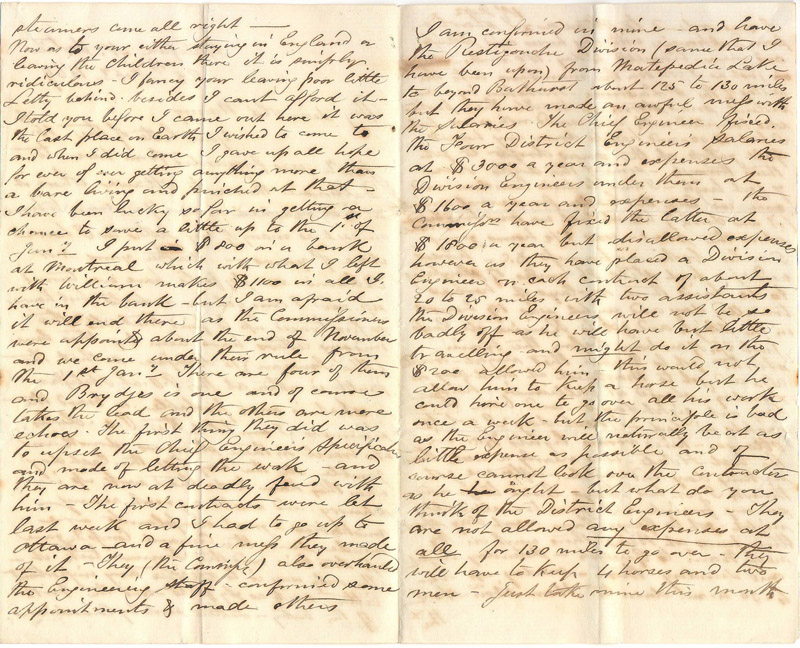 steamers come all right —
Now as to your either staying in England or
leaving the children there it is simply
ridiculous - I fancy your leaving poor little
Letty behind. besides I cant afford it -
I told you before I came out here it was
the last place on Earth I wished to come to
and when I did come I gave up all hope
for ever of ever getting anything more than
a bare living and pinched at that -
I have been lucky so far in getting a
chance to save a little up to the 1st of
Jany I put $800 in a bank
at Montreal which with what I left
with William makes $1100 in all I
have in the bank - but I am afraid
it will end there as the Commissioners
were appointed about the end of November
and we come under their rule from
the 1st Jany There are four of them
and Brydges is one and of course
takes the lead and the others are mere
echoes. The first thing they did was
to upset the Chief Engineers Specification
and mode of letting the work - and
they are now at deadly feud with
him - The first contracts were let
last week and I had to go up to
Ottawa - and a fine mess they made
of it - They (the Comsrs) also overhauled
the Engineering staff - confirmed some
appointments & made others
I am confirmed in mine - and have
the Restigouche Division (same that I
have been upon) from Matepedia Lake
to beyond Bathurst about 125 to 130 miles
but they have made an awful mess with
the Salaries. The Chief Engineer fixed
the Four District Engineers Salaries
at $3000 a year and expenses the
Division Engineers under them at
$1600 a year and expenses - the
Commissrs have fixed the latter at
$1600 a year but disallowed expenses
however as they have placed a Division
Engineer on each contract of about
20 to 25 miles with two assistants
the Division Engineers will not be so
badly off as he will have but little
travelling and might do it on the
$200 allowed him - this would not
allow him to keep a horse but he
could hire one to go over all his work
once a week - but the principle is bad
as the Engineer will naturally be at as
little expense as possible and of
course cannot look over the contractor
as he ought but what do you
think of the District Engineers - They
are not allowed any expenses at
all for 130 miles to go over - they
will have to keep 4 horses and two
men - Just take mine this month